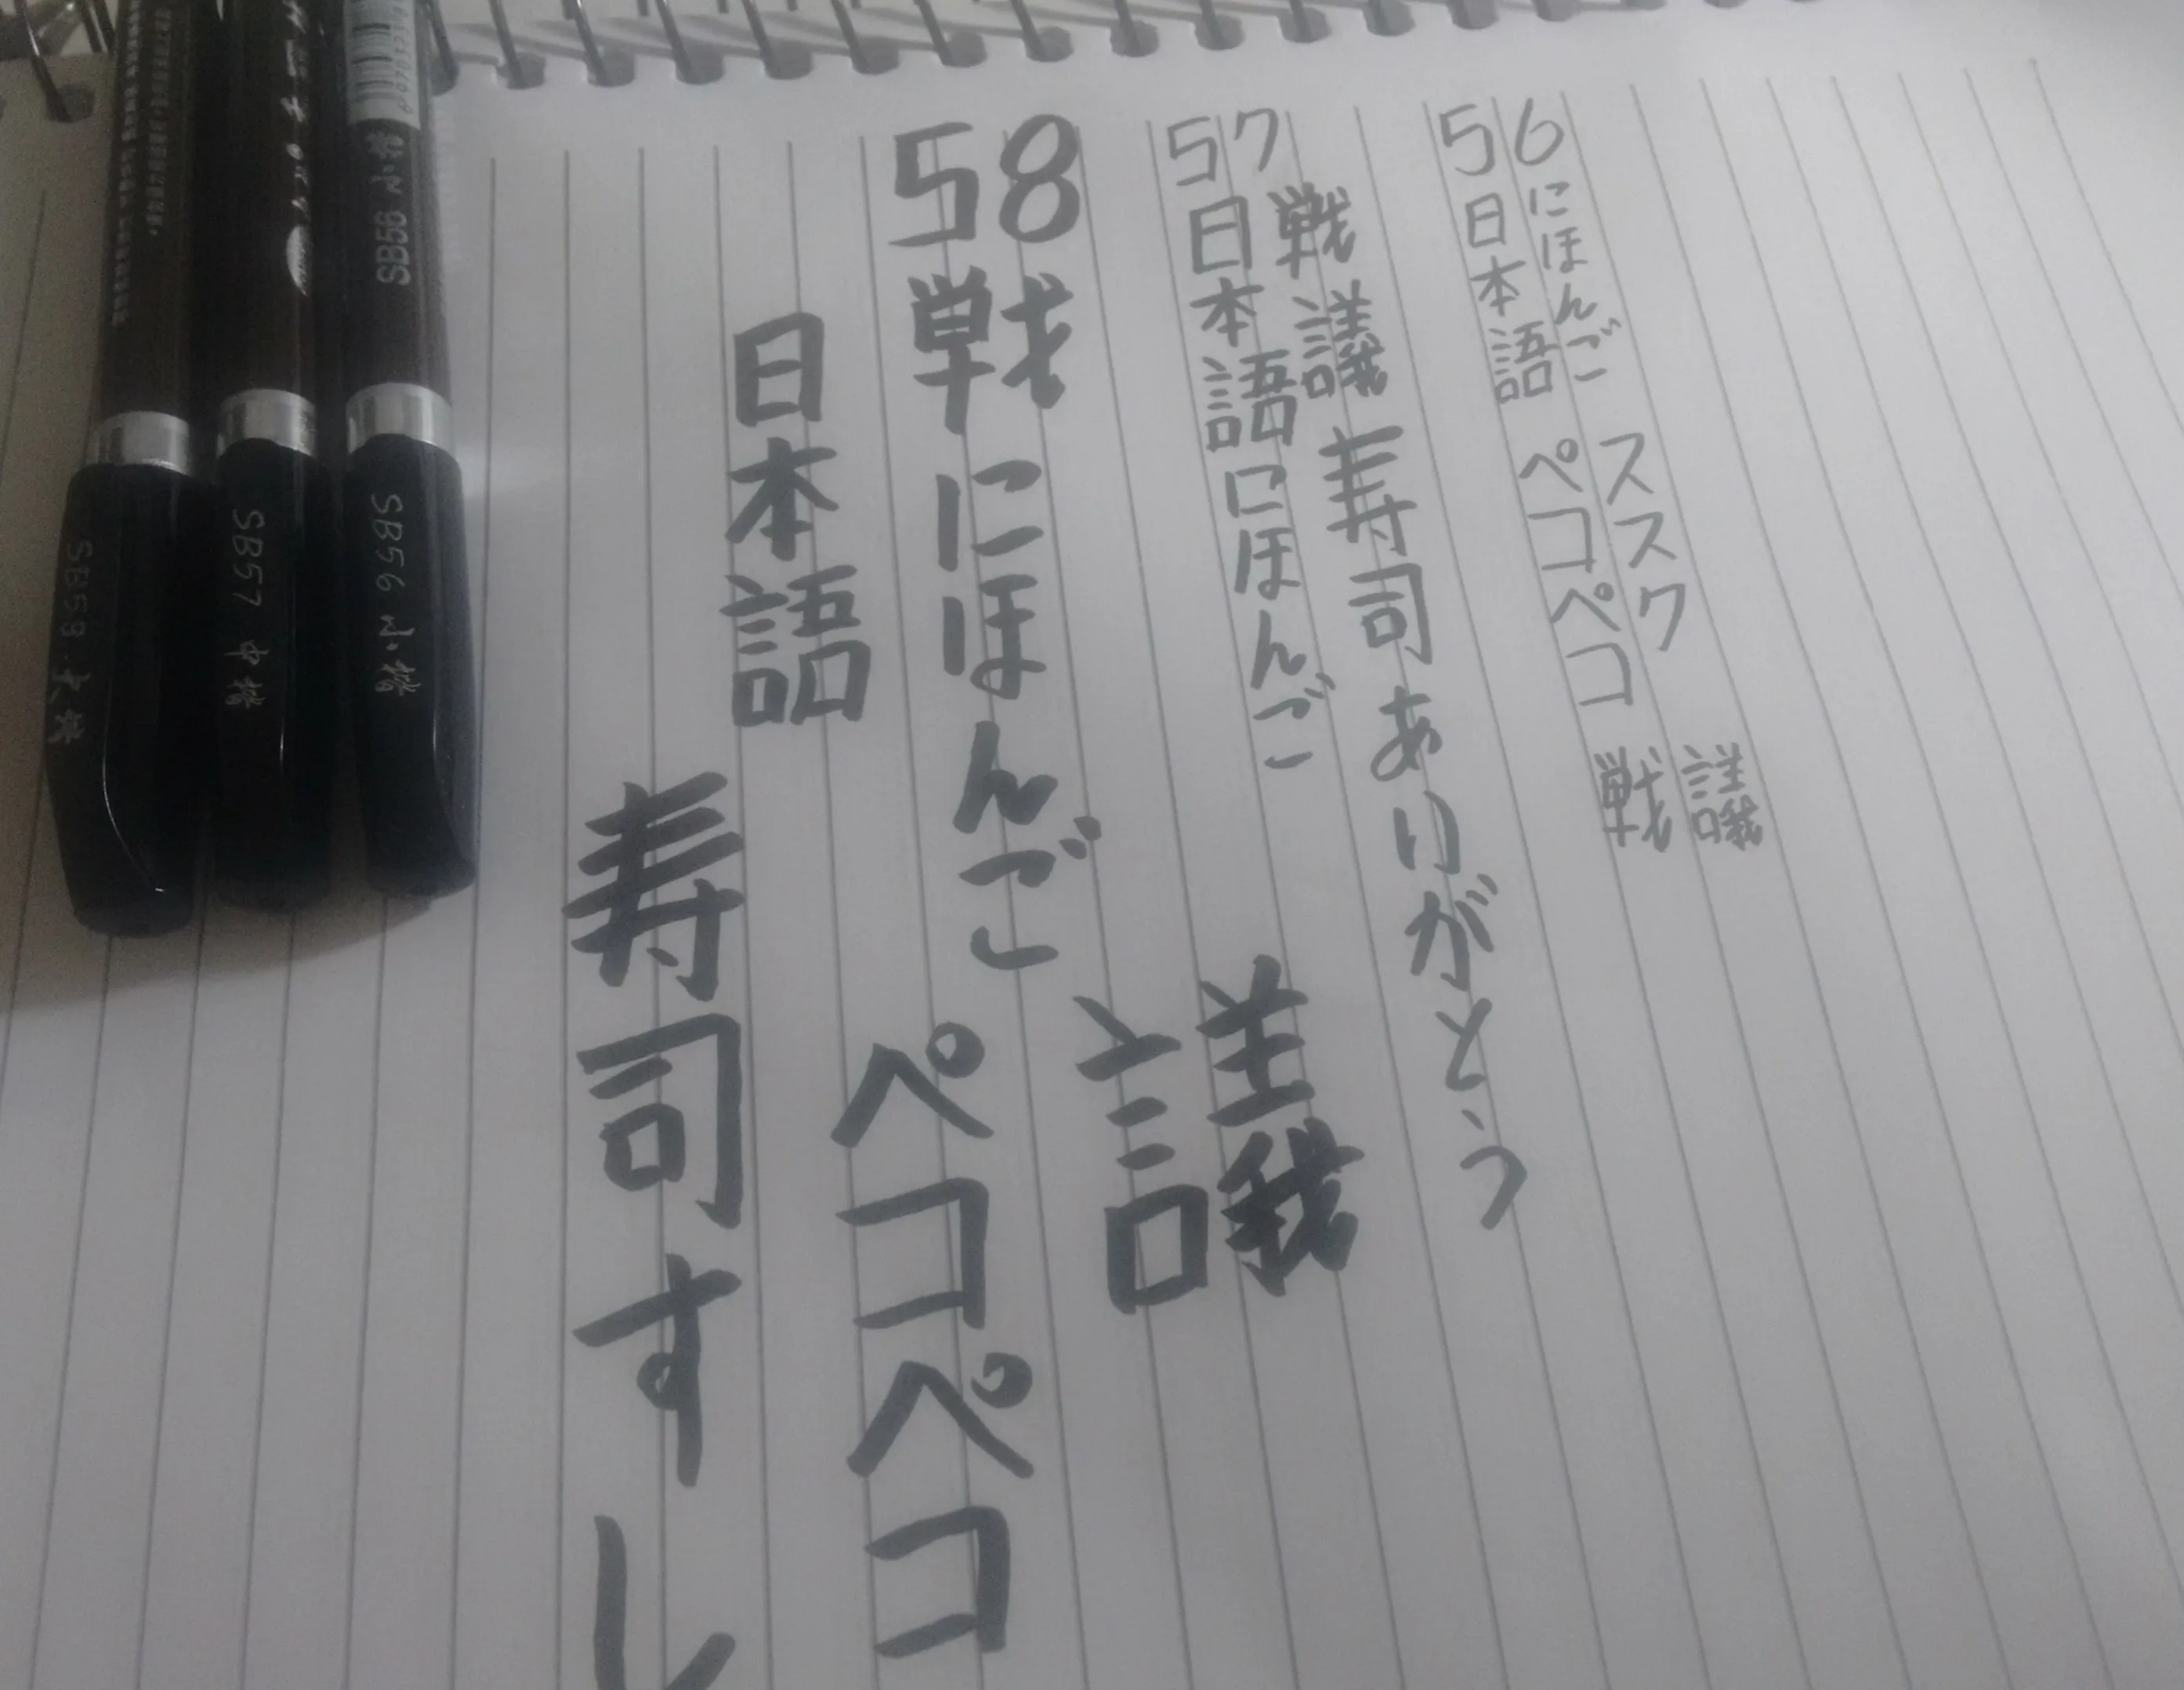 56
にほんご
日本語
ススク
ペコペコ
議
戦
57
戦議寿司ありがとう
日本語にほんご
58
戦にほんご
議
日本語
ペコペコ
寿司すし
SB56 小楷
SB56 小楷
SB57 中楷
SB58 大楷